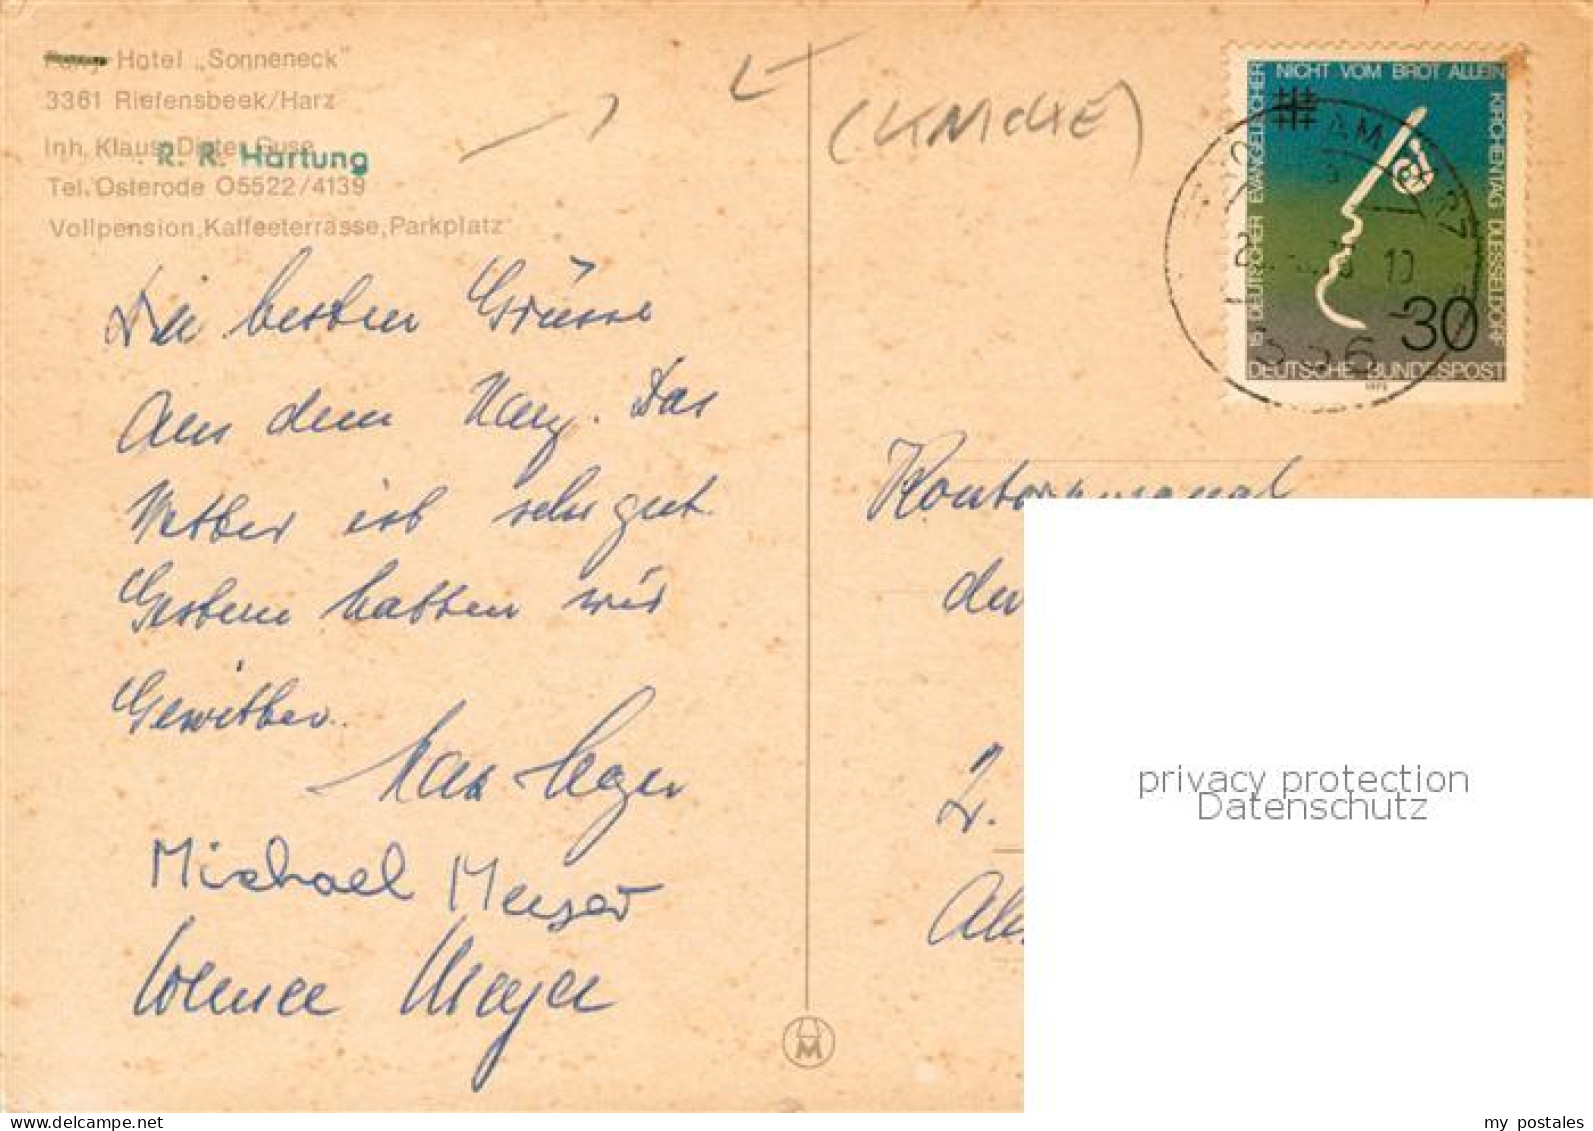 Hotel „Sonneneck"
3361 Riefensbeek/Harz
Inh. Klaus Dieter Suse
R. R. Hartung
Tel. Osterode 05522/4139
Vollpension, Kaffeeterrasse, Parkplatz
Die besten Grüsse
Aus dem Harz. Das
Wetter ist sehr gut.
Gestern hatten wir
Gewitter.
Michael Meyer
Werner Meyer
NICHT VOM BROT ALLEIN
15. DEUTSCHER EVANGELISCHER
KIRCHENTAG DUESSELDORF
30
DEUTSCHE BUNDESPOST
1973
AM HARZ
10
336
Kontorpersonal
der
2.
privacy protection
Datenschutz
my postales